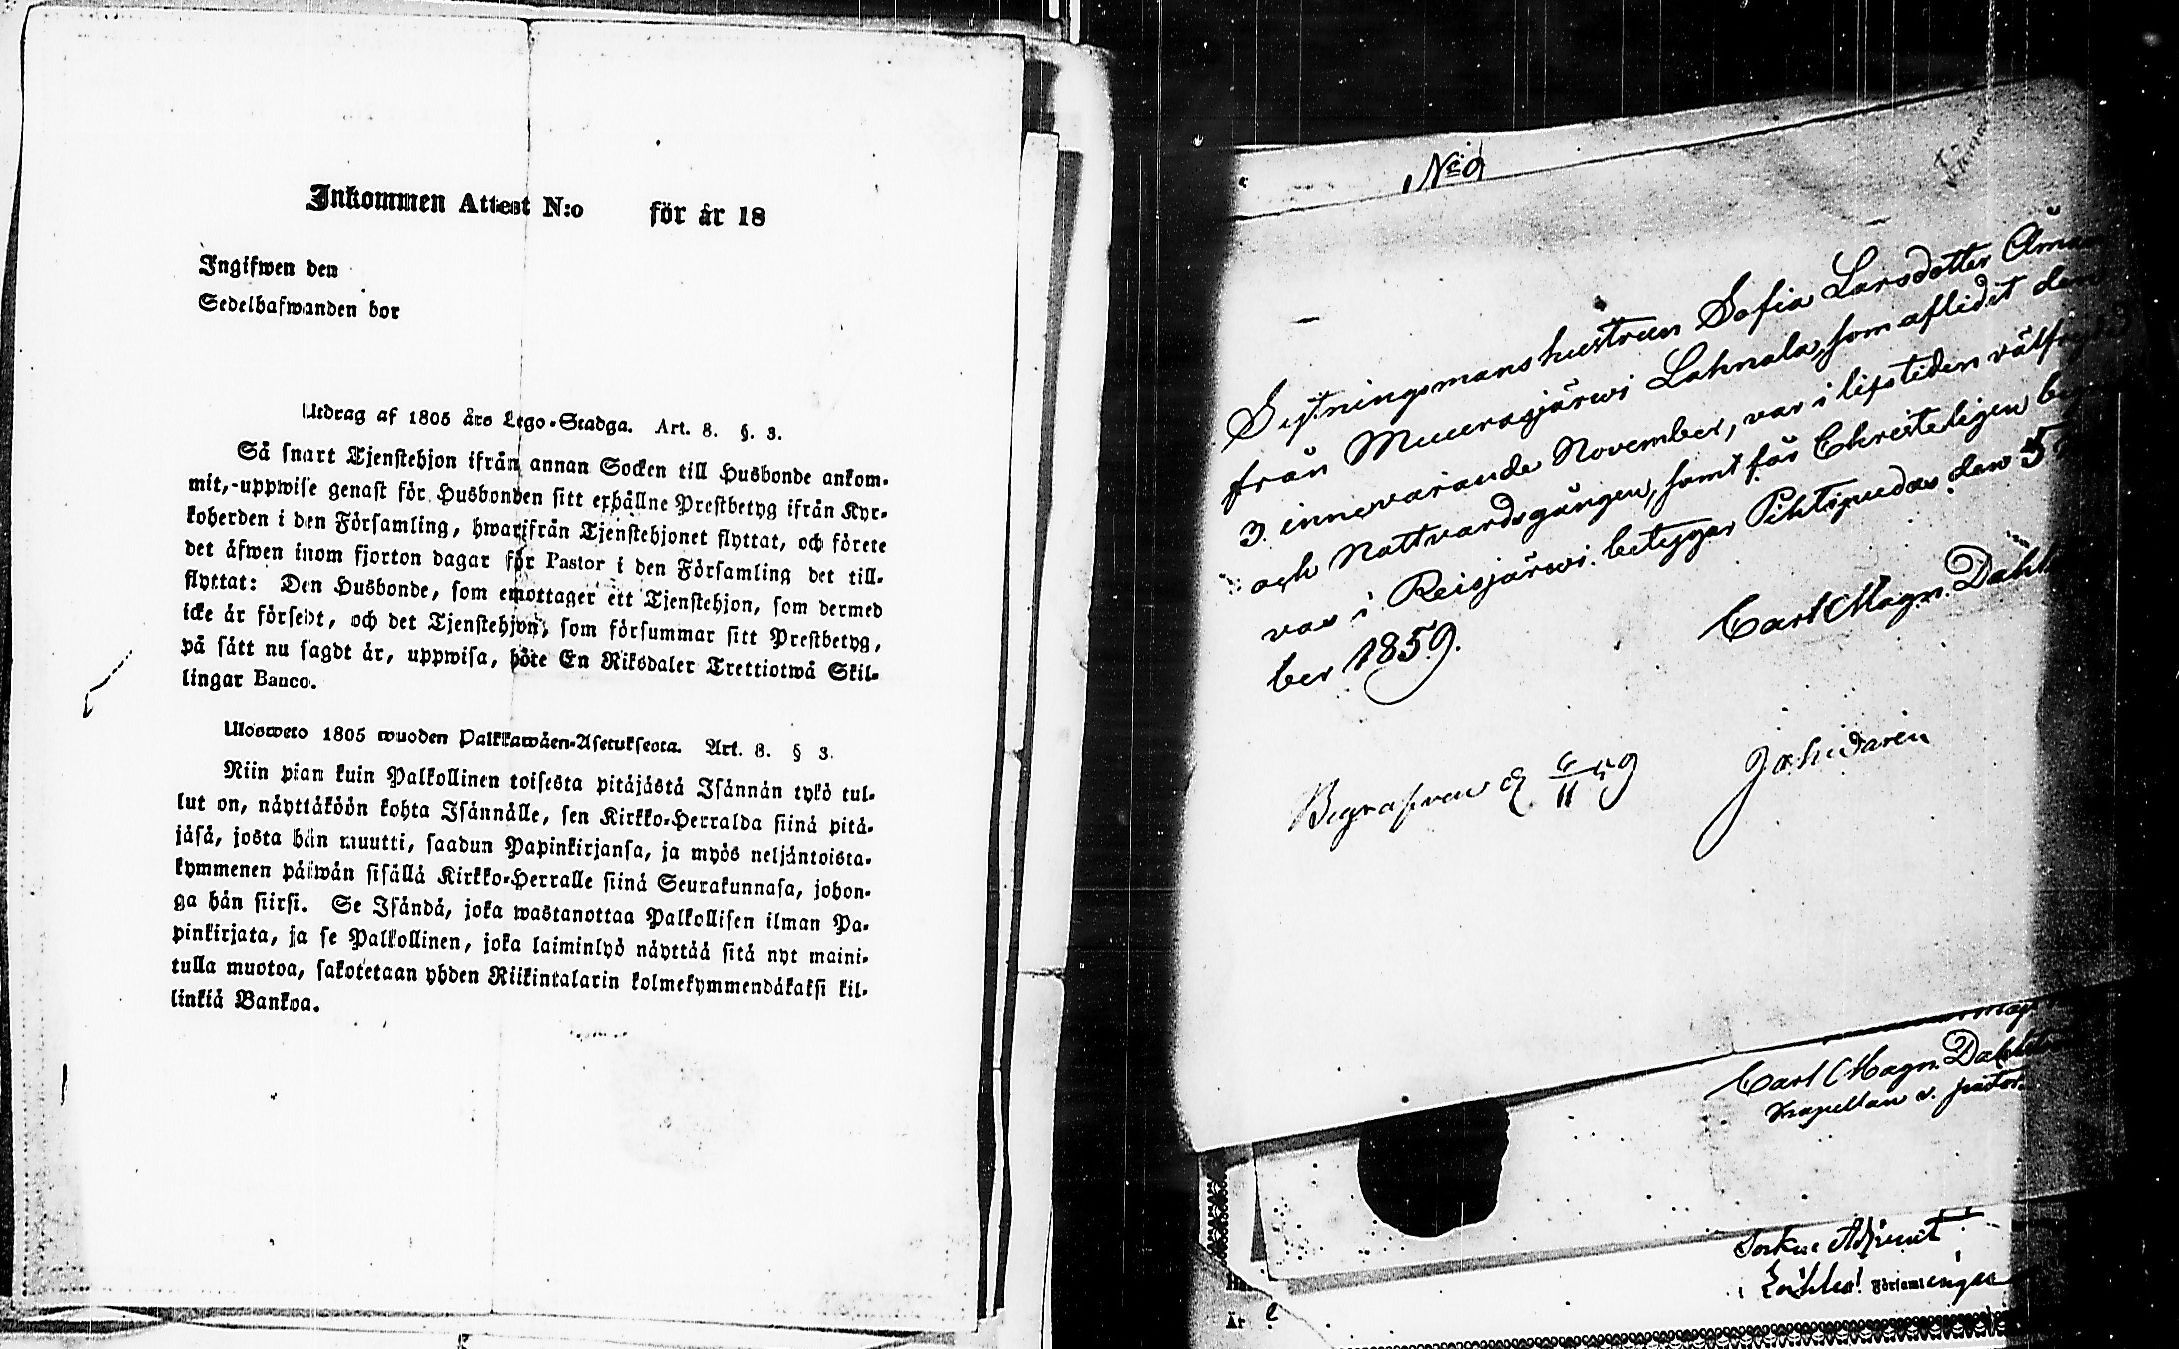 Inkommen Attest N:o för år 18
Ingifwen den
Sedelhafwanden bor
Utdrag af 1805 års Lego-Stadga. Art. 8. §. 3.
Så snart Tjenstehjon ifrån annan Socken till Husbonde ankom-
mit, uppwise genast för Husbonden sitt erhållne Prestbetyg ifrån Kyr-
koherden i den Församling, hwarifrån Tjenstehjonet flyttat, och förete
det äfwen inom fjorton dagar för Pastor i den Församling det till-
flyttat: Den Husbonde, som emottager ett Tjenstehjon, som dermed
icke är försedt, och det Tjenstehjon, som försummar sitt Prestbetyg,
på sätt nu sagdt är, uppwisa, böte En Riksdaler Trettiotwå Skil-
lingar Banco.
Ulosweto 1805 wuoden Palkkawäen-Asetuksesta. Art. 8. § 3.
Niin pian kuin Palkollinen toisesta pitäjästä Isännän tykö tul-
lut on, näyttäköön kohta Isännälle, sen Kirkko-Herralda siinä pitä-
jäsä, josta hän muutti, saadun Papinkirjansa, ja myös neljäntoista-
kymmenen päiwän sisällä Kirkko-Herralle siinä Seurakunnasa, johon-
ga hän siirsi. Se Isändä, joka wastanottaa Palkollisen ilman Pa-
pinkirjata, ja se Palkollinen, joka laiminlyö näyttää sitä nyt maini-
tulla muotoa, sakotetaan yhden Riikintalarin kolmekymmendäkaksi kil-
linkiä Bankoa.
No 9
Sytningsmanshustrun Sofia Larsdotter
från Muurasjärwi Lahnala, som aflidit den
3 innevarande November, var i lifstiden
och Nattvardsgången, samt får Christeligen
vas i Reisjärwi. betygar Pihtipudas den 5
ber 1859.
Carl Magn. Dahl
Begrafven d. 6/11 59
Carl Magn. Dahl
Kapellan v. pastor.
Adjunct
Församlingen
År